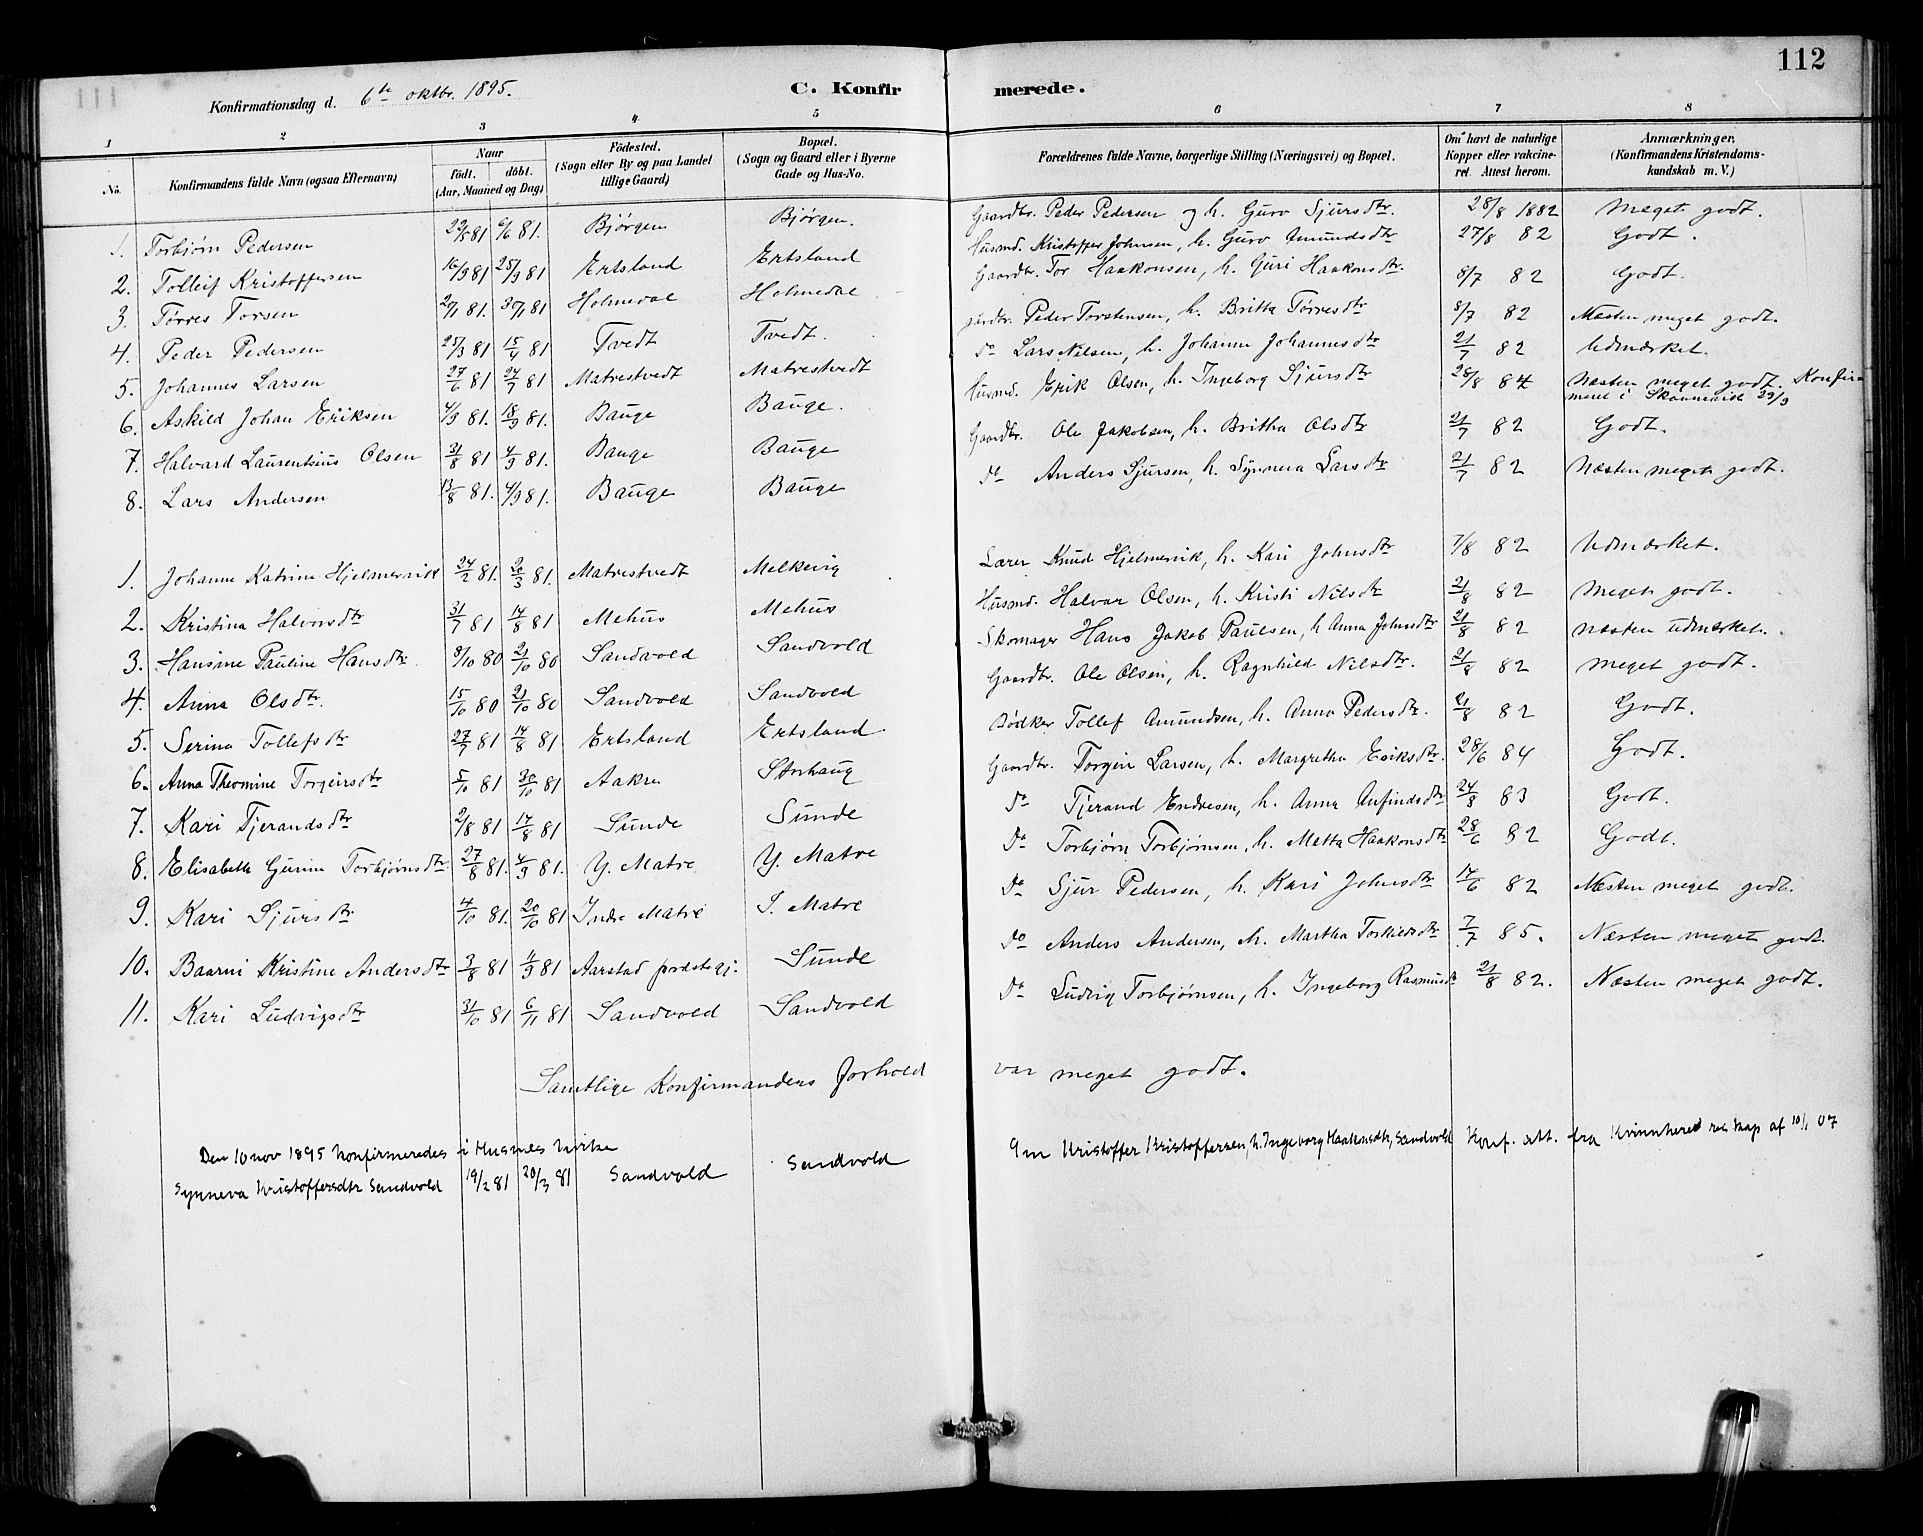 112
Konfirmationsdag d. 6te oktbr. 1895.
C. Konfirmerede.
1 2 3 4 5 6 7 8
No. Konfirmandens fulde Navn (ogsaa Efternavn) Naar födt. döbt. (Aar, Maaned og Dag) Födested. (Sogn eller By og paa Landet tillige Gaard) Bopæl. (Sogn og Gaard eller i Byerne Gade og Hus-No. Forældrenes fulde Navne, borgerlige Stilling (Næringsvei) og Bopæl. Om havt de naturlige Kopper eller vakcineret. Attest herom. Anmærkninger. (Konfirmandens Kristendomskundskab m. V.)
1. Torbjørn Pedersen 22/5 81 6/6 81. Bjørgen Bjørgen. Gaardbr. Peder Pedersen og h. Guro Sjursdtr. 28/8 1882 Meget godt.
2. Tolleif Kristoffersen 16/9 81 25/9 81 Ertsland Ertsland Husmd. Kristoffer Johnsen, h. Guro Amundsdtr 27/8 82 Godt.
3. Tørres Torsen 20/1 81. 30/1 81 Holmedal Holmedal Gaardbr. Tor Haakonsen, h. Guri Haakonsdtr. 8/7 82 Godt.
4. Peder Pedersen 25/3 81 15/4 81 Tvedt Tvedt. Peder Torstensen, h. Britta Tørresdtr 8/7 82 Næsten meget godt.
5. Johannes Larsen 27/6 81 24/7 81 Matrestvedt Matrestvedt Do Lars Nilsen, h. Johanne Johannesdtr 21/7 82 Udmærket.
6. Askild Johan Eriksen 4/9 81. 18/9 81. Bauge Bauge. Husmd. Erik Olsen, h. Ingeborg Sjursdtr 28/8 84 Næsten meget godt. Konfirmeret i Skaanevik 29/9
7. Halvard Laurentsius Olsen 31/8 81 4/9 81. Bauge Bauge Gaardbr. Ole Jakobsen, h. Britha Olsdtr 21/7 82 Godt.
8. Lars Andersen 13/8 81. 4/9 81. Bauge Bauge Do Anders Sjursen, h. Synneva Larsdtr 21/7 82 Næsten meget godt.
1. Johanne Katrine Hjelmervik 24/2 81. 20/3 81. Matrestvedt Melkevig Lærer Knud Hjelmervik, h. Kari Johnsdtr 7/8 82 Udmærket.
2. Kristina Halvorsdtr 31/7 81 14/8 81 Mehus Mehus Husmd. Halvar Olsen, h. Kristi Nilsdtr 21/8 82 Meget godt.
3. Hansine Pauline Hansdtr 8/10 80 21/10 80 Sandvold Sandvold Skomager Hans Jakob Paulsen, h Anna Johnsdtr 21/8 82 Næsten udmærket.
4. Anna Olsdtr. 15/10 80 21/10 80 Sandvold Sandvold Gaardbr. Ole Olsen, h. Ragnhild Nilsdtr. 21/8 82 Meget godt.
5. Serina Tollefsdtr 27/7 81 14/8 81 Ertsland Ertsland Bødker Tollef Amundsen, h. Anna Pedersdtr. 21/8 82 Godt.
6. Anna Theomine Torgeirsdtr 5/10 81 30/10 81 Aakra Storhaug Gaardbr. Torgeir Larsen, h. Margretha Eriksdtr. 28/6 84 Godt.
7. Kari Tjerandsdtr 2/8 81 14/8 81 Sunde Sunde Do Tjerand Endresen, h. Anna Anfindsdtr 24/8 83 Godt.
8. Elisabeth Gurine Torbjørnsdtr 27/8 81. 4/9 81. Y. Matre Y. Matre Do Torbjørn Torbjørnsen, h. Metta Haakonsdtr 28/6 82 Godt.
9. Kari Sjursdtr 4/10 81. 20/10 81 Indre Matre I. Matre Do Sjur Pedersen, h. Kari Johnsdtr 17/6 82 Næsten meget godt.
10. Baarni Kristine Andersdtr 3/8 81 4/9 81 Aarstad prestegj. Sunde Do Anders Andersen, h. Martha Torkildsdtr 7/7 85. Næsten meget godt.
11. Kari Ludvigsdtr 31/10 81 6/11 81 Sandvold Sandvold Do Ludvig Torbjørnsen, h. Ingeborg Rasmusdtr 21/8 82. Næsten meget godt.
Samtlige Konfirmanders Forhold var meget godt.
Den 10 nov 1895 konfirmeredes i Husnes kirke
Synneva Kristoffersdtr Sandvold 19/2 81 20/3 81 Sandvold Sandvold Gm Kristoffer Kristoffersen, h. Ingeborg Haakonsdtr, Sandvold Konf. att. fra Kvinnhered af 10/1 07